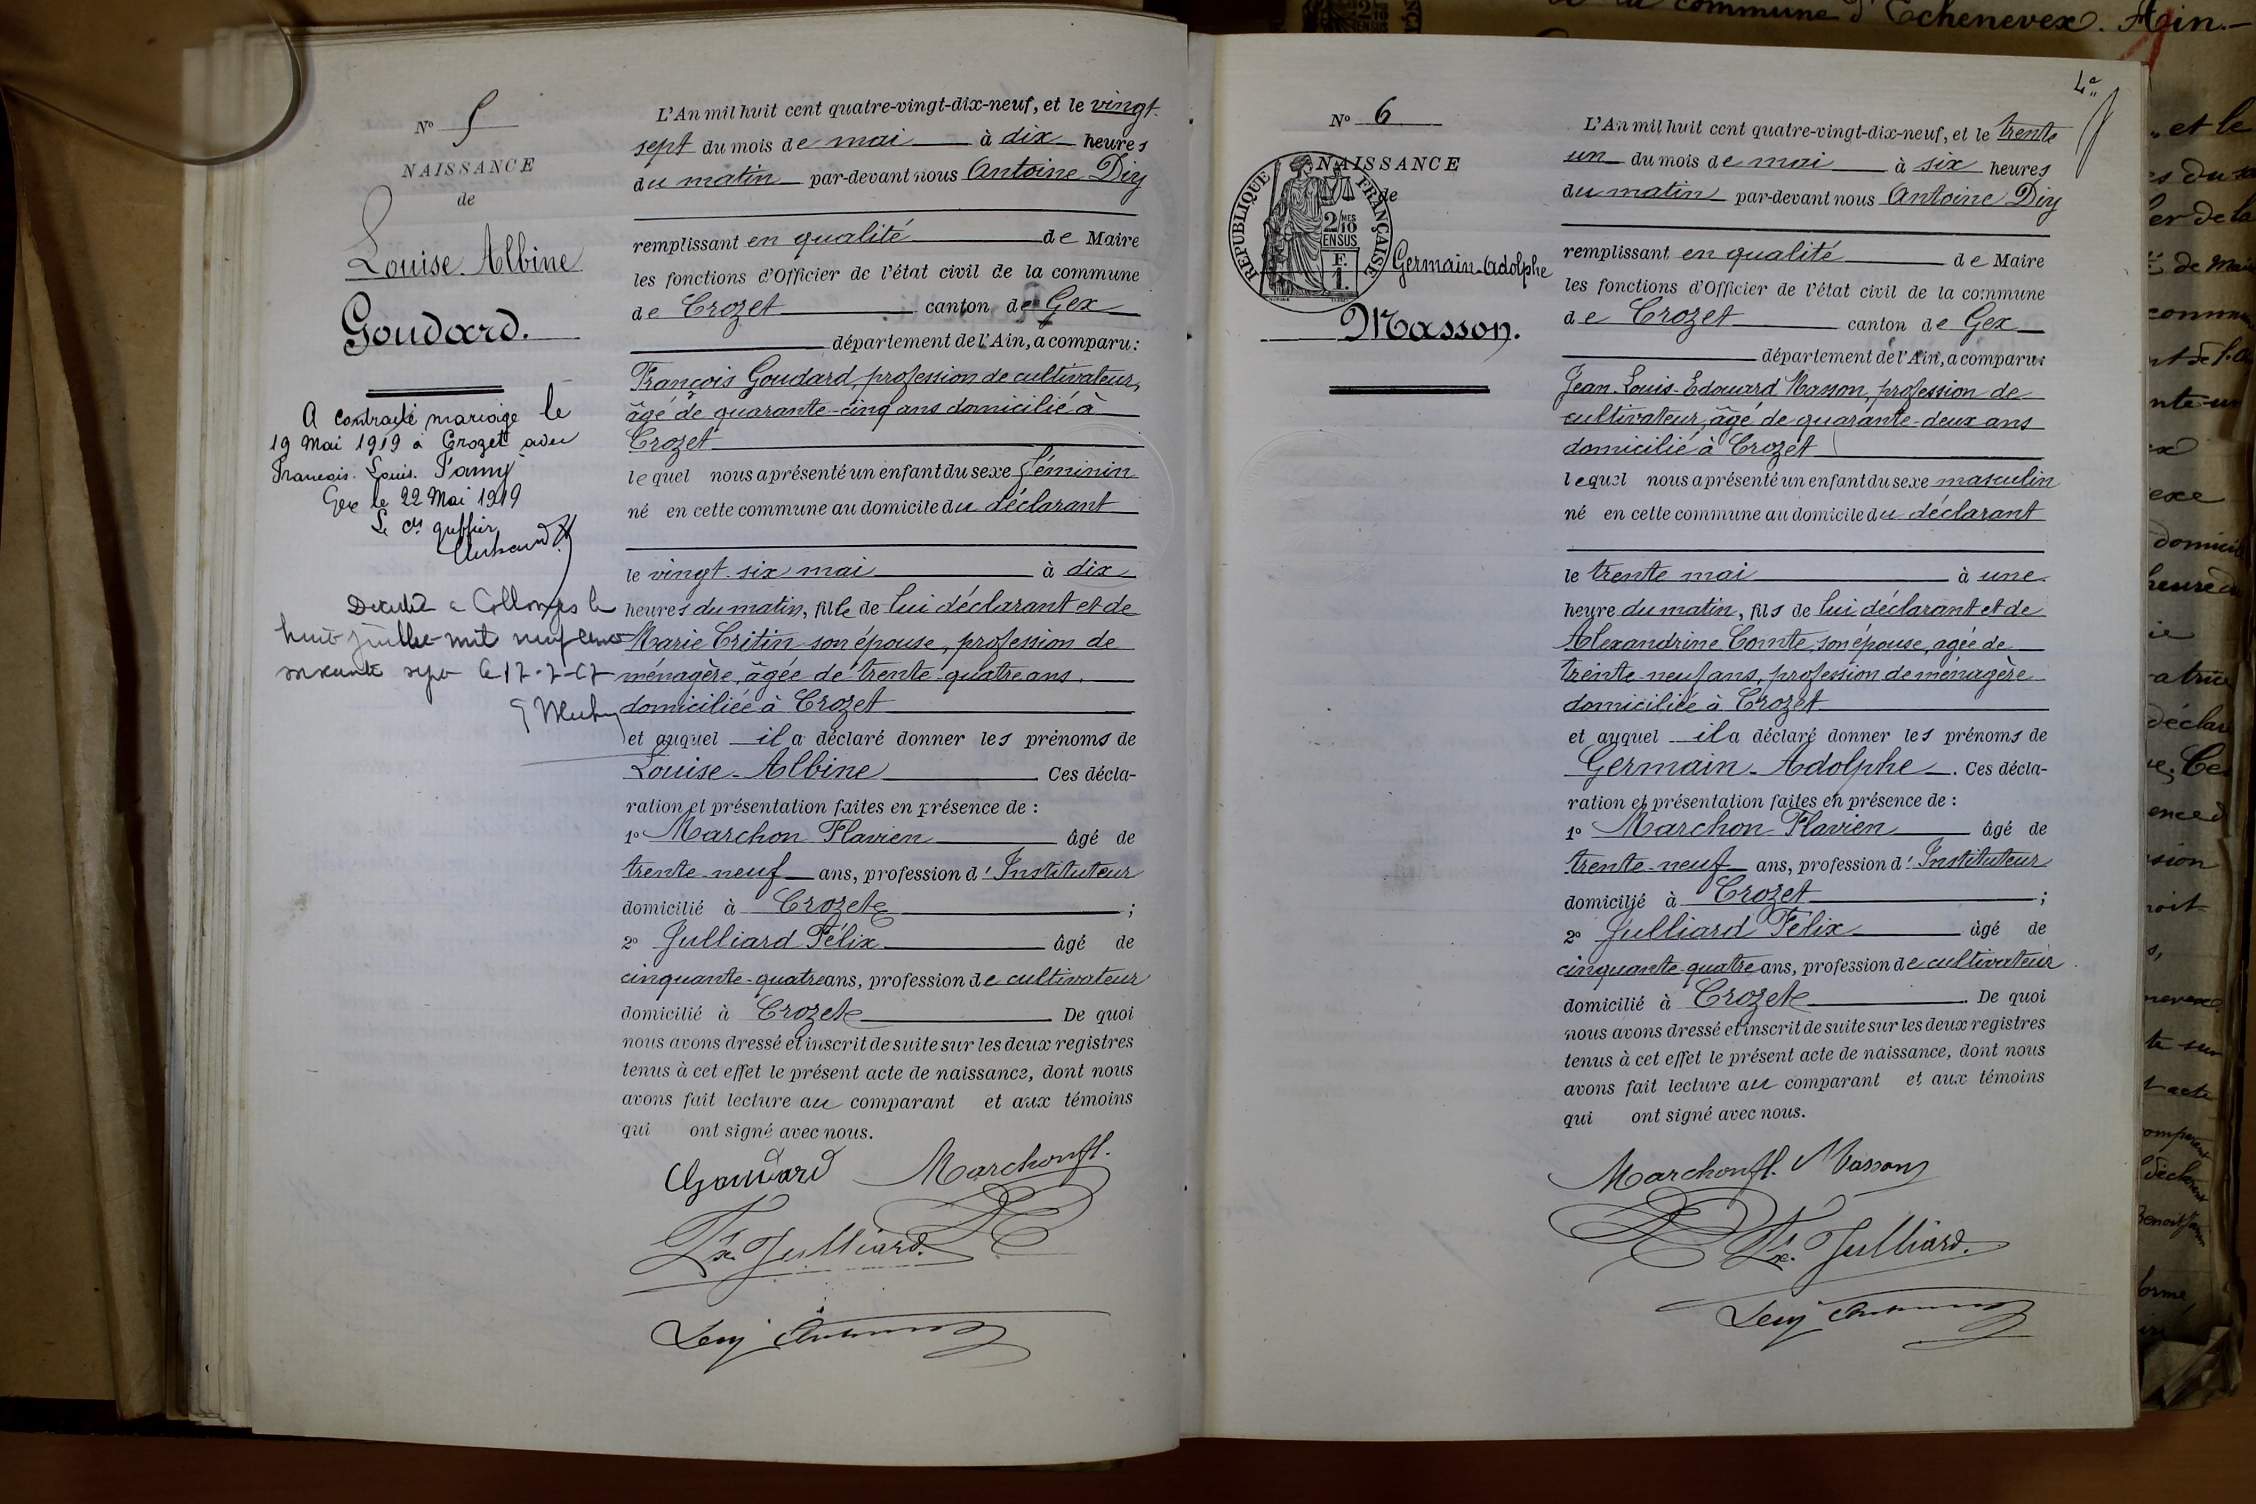 de la commune d'Echenevex. Ain.-
N° 5
NAISSANCE
de
Louise-Albine
Goudard.
A contracté mariage le
19 Mai 1919 à Crozet avec
François Louis
Gex le 22 Mai 1919
Le greffier
Décédée à Collonges le
huit juillet mil neuf cent
soixante sept le 17-7-67
L'An mil huit cent quatre-vingt-dix-neuf, et le vingt-
sept du mois de mai à dix heures
du matin par-devant nous Antoine Diy
remplissant en qualité de Maire
les fonctions d'Officier de l'état civil de la commune
de Crozet canton de Gex
département de l'Ain, a comparu:
François Goudard, profession de cultivateur,
âgé de quarante-cinq ans domicilié à
Crozet
lequel nous a présenté un enfant du sexe féminin
né en cette commune au domicile du déclarant
le vingt-six mai à dix
heures du matin, fille de lui déclarant et de
Marie Critin son épouse, profession de
ménagère, âgée de trente-quatre ans.
domiciliée à Crozet
et auquel il a déclaré donner les prénoms de
Louise-Albine Ces décla-
ration et présentation faites en présence de :
1° Marchon Flavien âgé de
trente-neuf ans, profession d'Instituteur
domicilié à Crozet ;
2° Julliard Félix âgé de
cinquante-quatre ans, profession de cultivateur
domicilié à Crozet De quoi
nous avons dressé et inscrit de suite sur les deux registres
tenus à cet effet le présent acte de naissance, dont nous
avons fait lecture au comparant et aux témoins
qui ont signé avec nous.
Goudard Marchon fl.
Fx. Julliard.
N° 6
NAISSANCE
de
REPUBLIQUE FRANÇAISE
2/10 MES
EN SUS
F.
1.
Germain-Adolphe
Masson.
L'An mil huit cent quatre-vingt-dix-neuf, et le trente
un du mois de mai à six heures
du matin par-devant nous Antoine Diy
remplissant en qualité de Maire
les fonctions d'Officier de l'état civil de la commune
de Crozet canton de Gex
département de l'Ain, a comparu:
Jean-Louis-Edouard Masson, profession de
cultivateur, âgé de quarante-deux ans
domicilié à Crozet
lequel nous a présenté un enfant du sexe masculin
né en cette commune au domicile du déclarant
le trente mai à une
heure du matin, fils de lui déclarant et de
Alexandrine Comte, son épouse, agée de
trente-neuf ans, profession de ménagère
domiciliée à Crozet
et auquel il a déclaré donner les prénoms de
Germain-Adolphe. Ces décla-
ration et présentation faites en présence de :
1° Marchon Flavien âgé de
trente-neuf ans, profession d'Instituteur
domicilié à Crozet ;
2° Julliard Félix âgé de
cinquante-quatre ans, profession de cultivateur
domicilié à Crozet. De quoi
nous avons dressé et inscrit de suite sur les deux registres
tenus à cet effet le présent acte de naissance, dont nous
avons fait lecture au comparant et aux témoins
qui ont signé avec nous.
Marchon fl. Masson
Fx. Julliard.